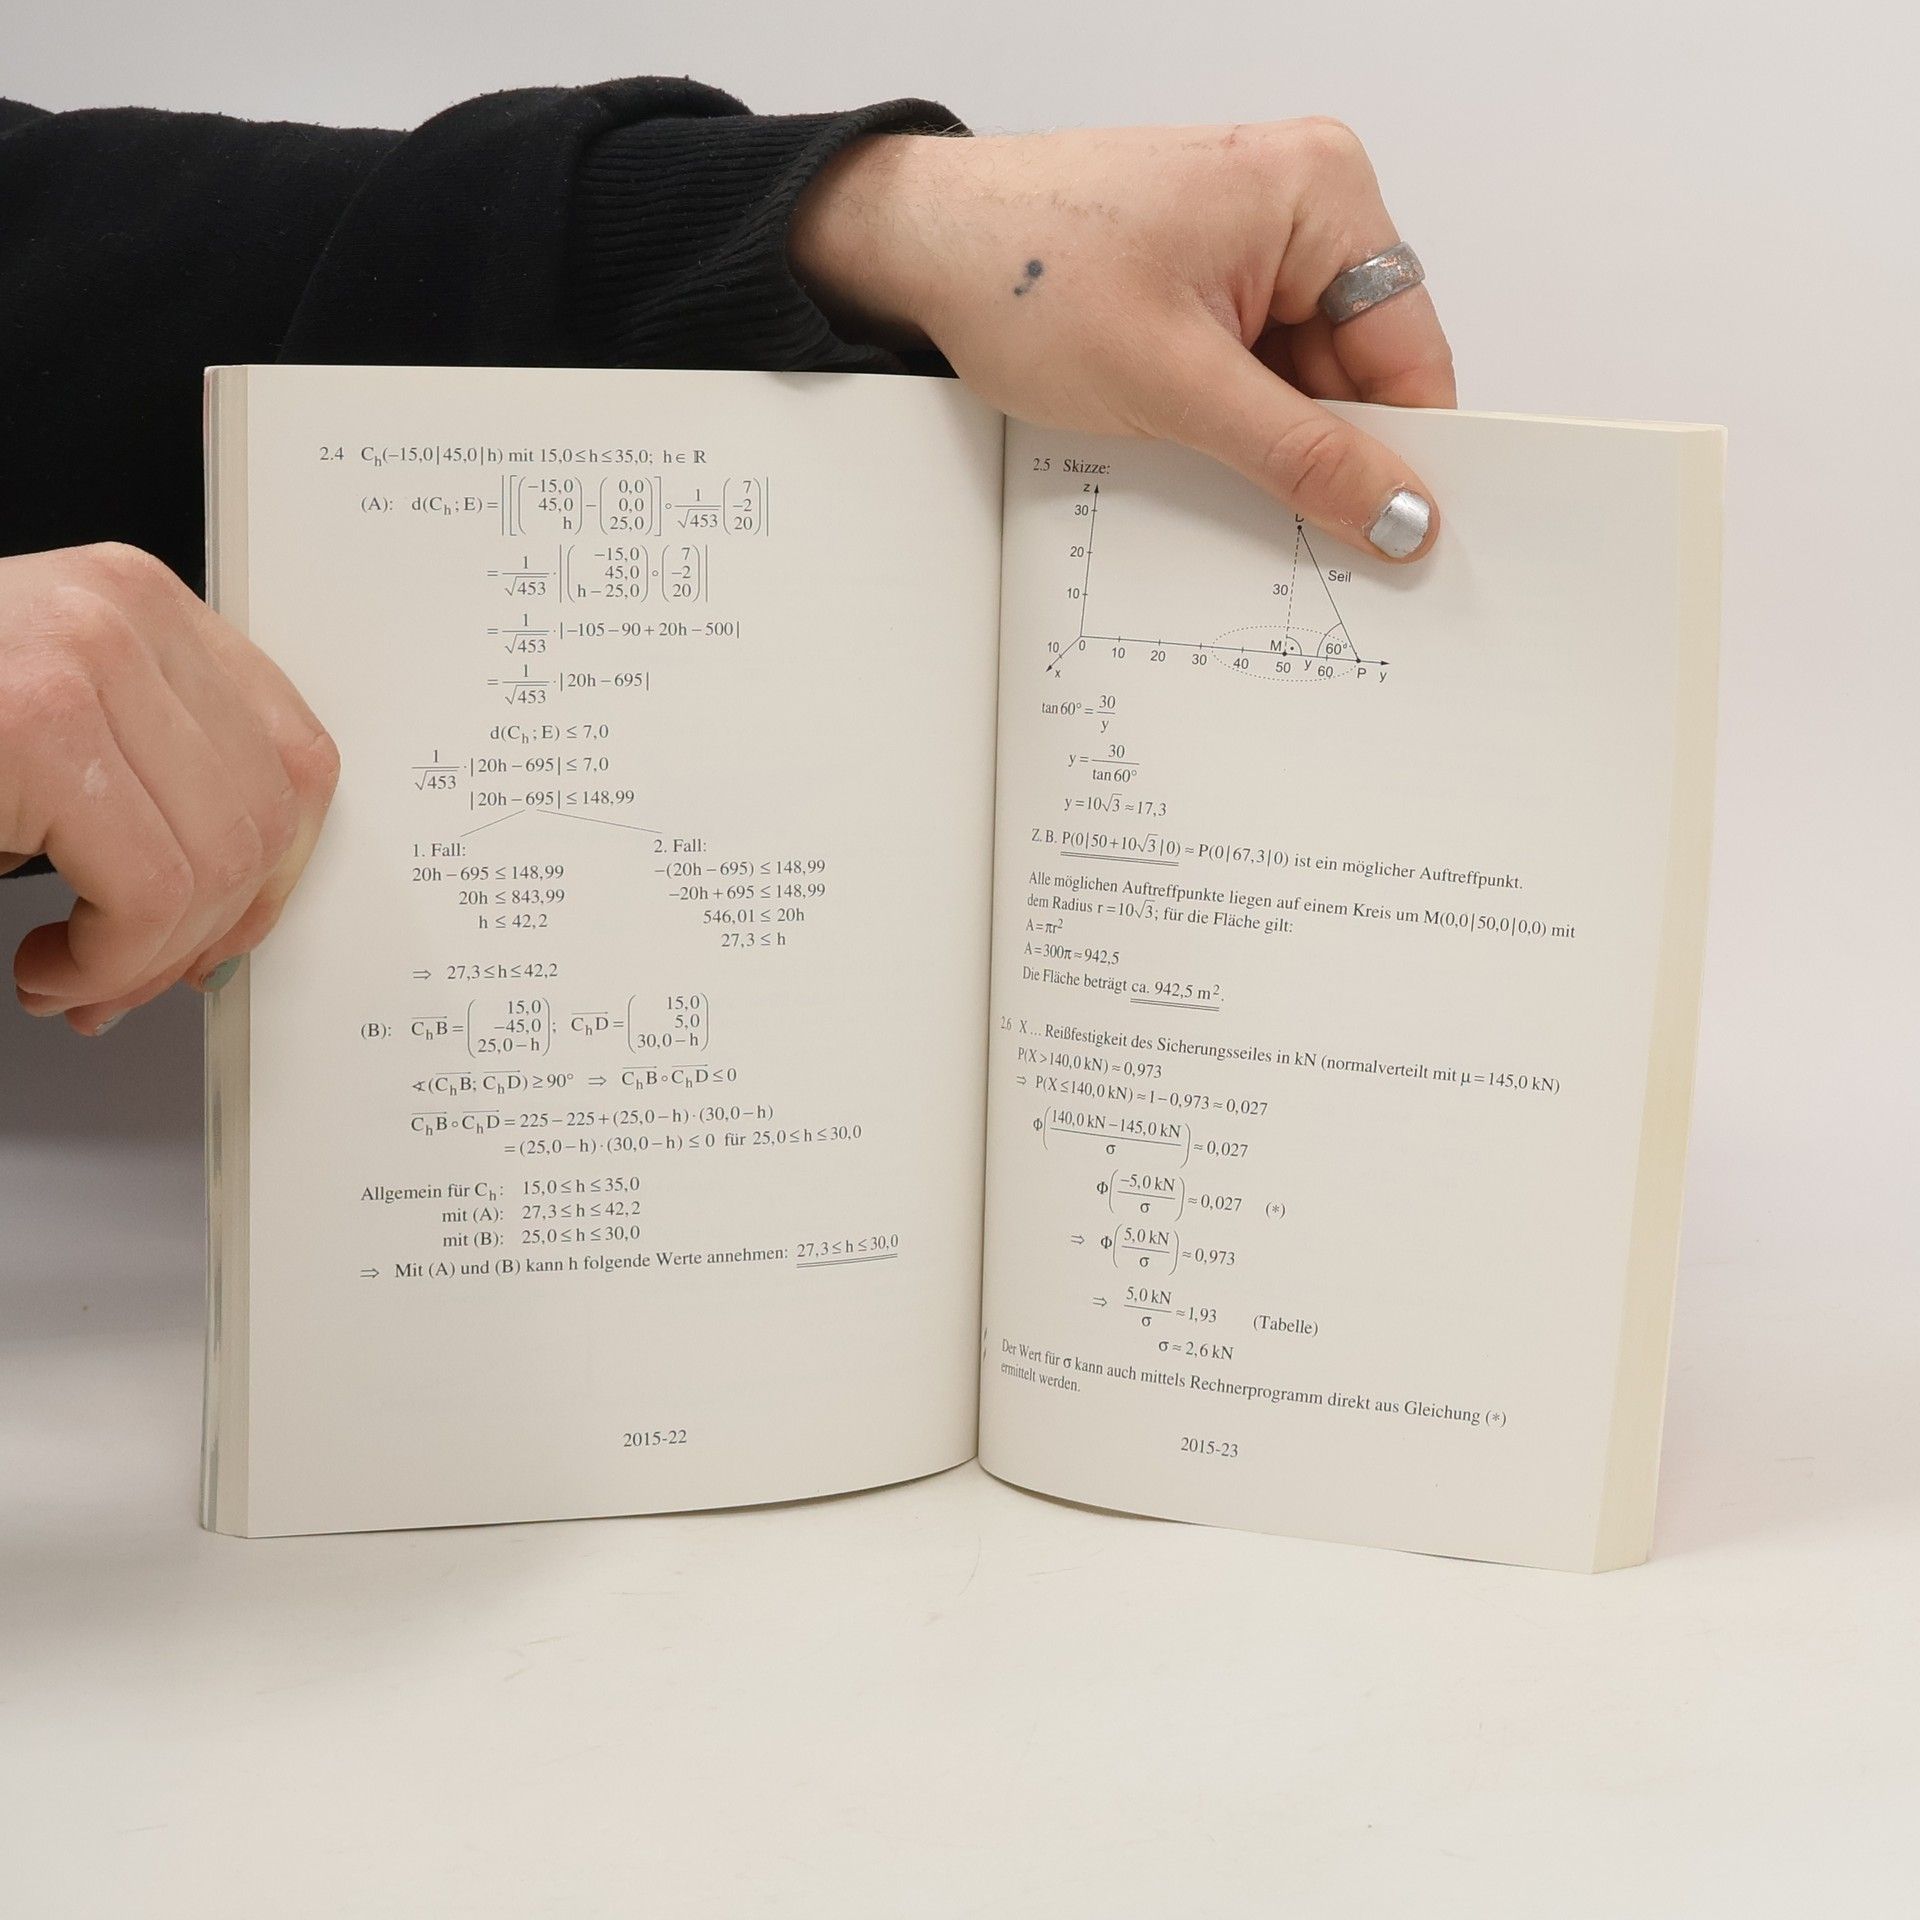 2.4 C_h(−15,0|45,0|h) mit 15,0≤h≤35,0; h∈ℝ
(A): d(C_h;E)=|[(−15,0 45,0 h)−(0,0 0,0 25,0)]∘1/√453(7 −2 20)|
=1/√453·|(−15,0 45,0 h−25,0)∘(7 −2 20)|
=1/√453·|−105−90+20h−500|
=1/√453·|20h−695|
d(C_h;E)≤7,0
1/√453·|20h−695|≤7,0
|20h−695|≤148,99
1. Fall: 2. Fall:
20h−695≤148,99 −(20h−695)≤148,99
20h≤843,99 −20h+695≤148,99
h≤42,2 546,01≤20h
27,3≤h
⇒ 27,3≤h≤42,2
(B): C_hB=(15,0 −45,0 25,0−h); C_hD=(15,0 5,0 30,0−h)
∢(C_hB; C_hD)≥90° ⇒ C_hB∘C_hD≤0
C_hB∘C_hD=225−225+(25,0−h)·(30,0−h)
=(25,0−h)·(30,0−h)≤0 für 25,0≤h≤30,0
Allgemein für C_h: 15,0≤h≤35,0
mit (A): 27,3≤h≤42,2
mit (B): 25,0≤h≤30,0
⇒ Mit (A) und (B) kann h folgende Werte annehmen: 27,3≤h≤30,0
2015-22
2.5 Skizze:
z
30
20
10
10 0 10 20 30 40 50 y 60 P y
x
30
Seil
M
60°
tan60°=30/y
y=30/tan60°
y=10√3≈17,3
Z.B. P(0|50+10√3|0)≈P(0|67,3|0) ist ein möglicher Auftreffpunkt.
Alle möglichen Auftreffpunkte liegen auf einem Kreis um M(0,0|50,0|0,0) mit
dem Radius r=10√3; für die Fläche gilt:
A=πr²
A=300π≈942,5
Die Fläche beträgt ca. 942,5 m².
2.6 X... Reißfestigkeit des Sicherungsseiles in kN (normalverteilt mit μ=145,0 kN)
P(X>140,0 kN)≈0,973
⇒ P(X≤140,0 kN)≈1−0,973≈0,027
Φ((140,0 kN−145,0 kN)/σ)≈0,027
Φ(−5,0 kN/σ)≈0,027 (*)
⇒ Φ(5,0 kN/σ)≈0,973
⇒ 5,0 kN/σ≈1,93 (Tabelle)
σ≈2,6 kN
Der Wert für σ kann auch mittels Rechnerprogramm direkt aus Gleichung (*)
ermittelt werden.
2015-23